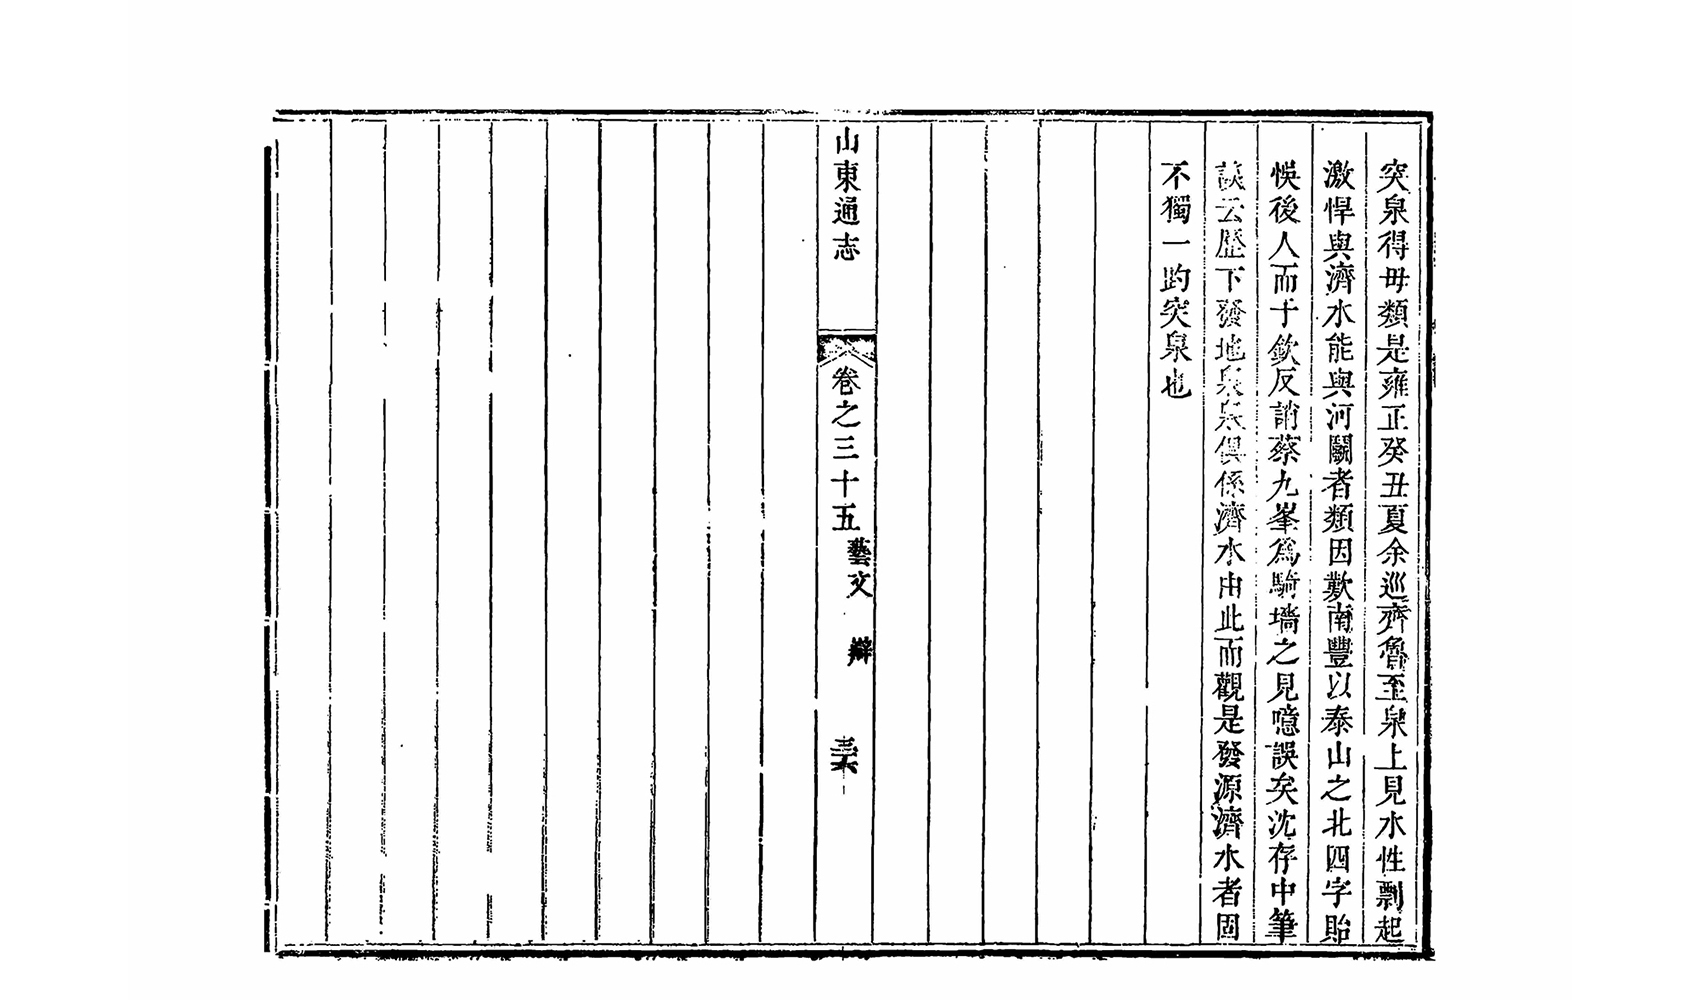 突泉得毋類是雍正癸丑夏余巡齊魯至泉上見水性剽起
激悍與濟水能與河鬭者類因歎南豐以泰山之北四字貽
悞後人而于欽反誚蔡九峯爲騎墻之見噫誤矣沈存中筆
談云歷下發地泉泉俱係濟水由此而觀是發源濟水者固
不獨一趵突泉也
山東通志
卷之三十五
藝文 辯
三六